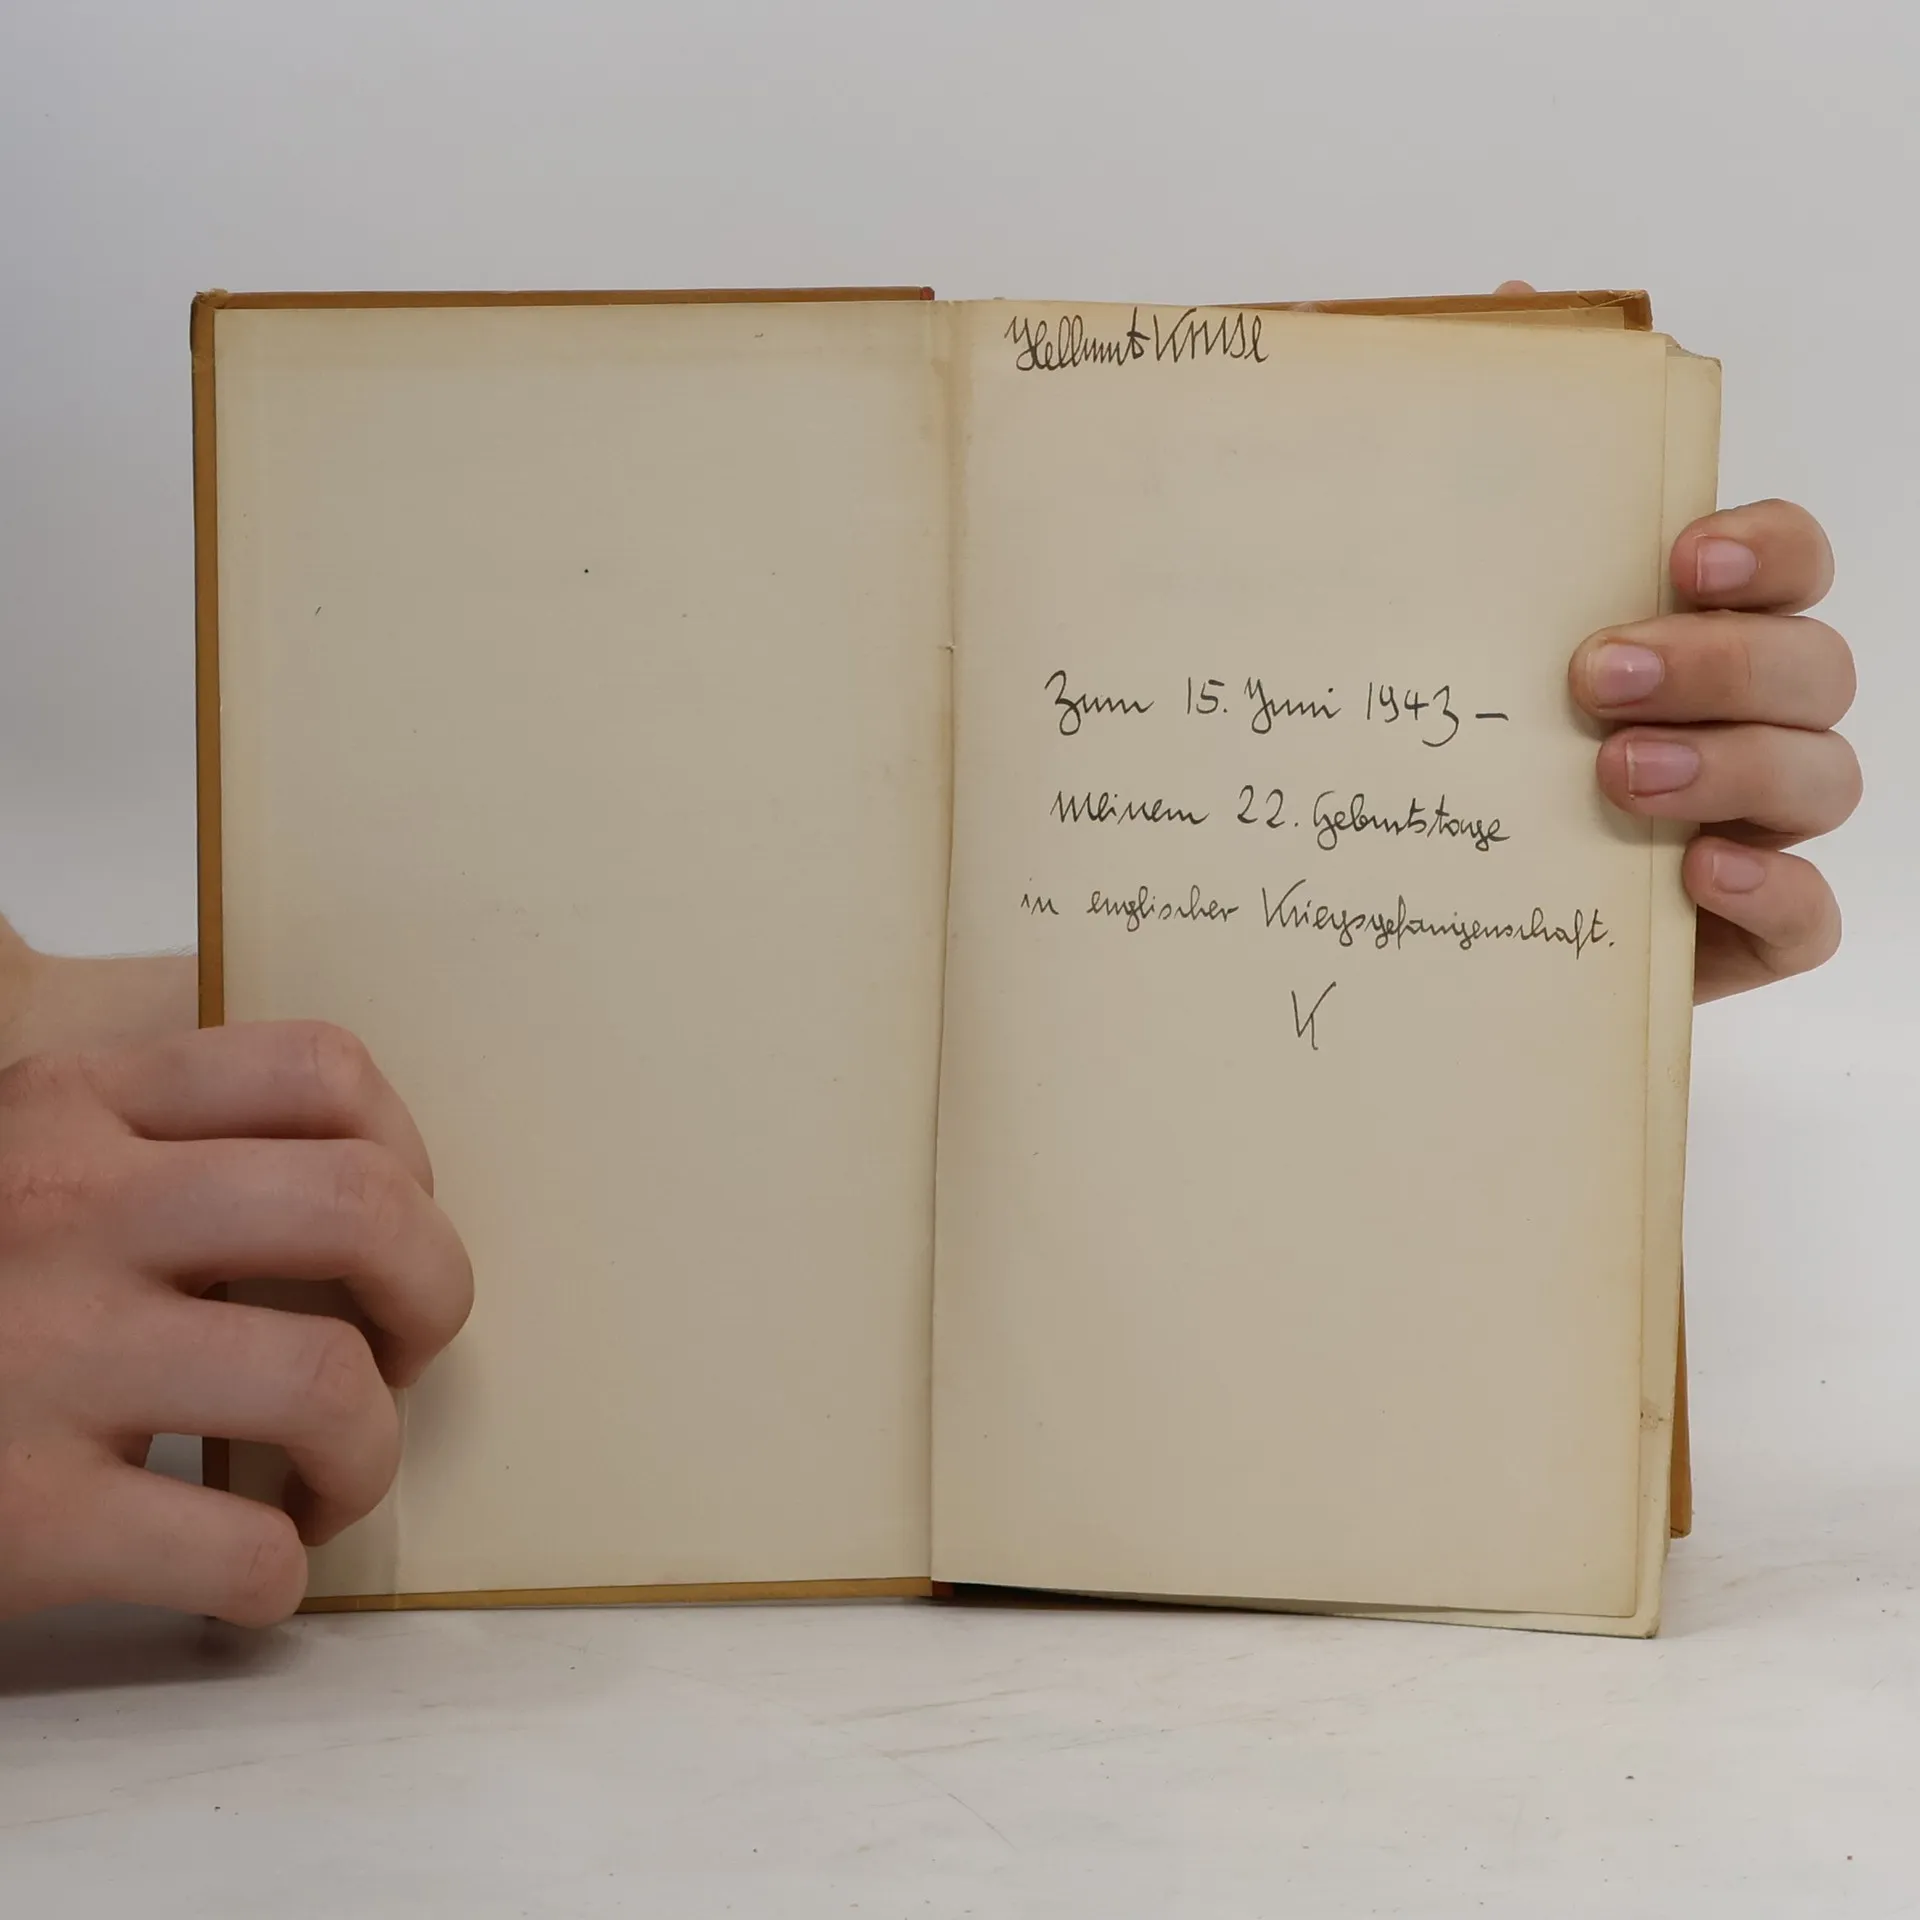 Hellmut Kruse
Zum 15. Juni 1943 –
meinem 22. Geburtstage
in englischer Kriegsgefangenschaft.
K